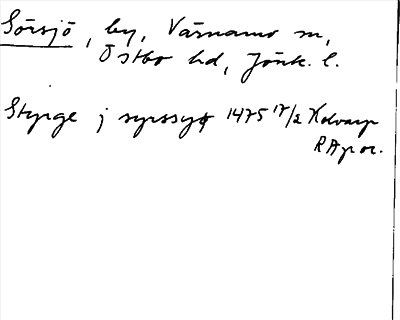 Sörsjö, by, Värnamo sn,
Östbo hd, Jönk. l.
Styrge j syrssyø 1475 17/2 Kolvarp
RAp or.